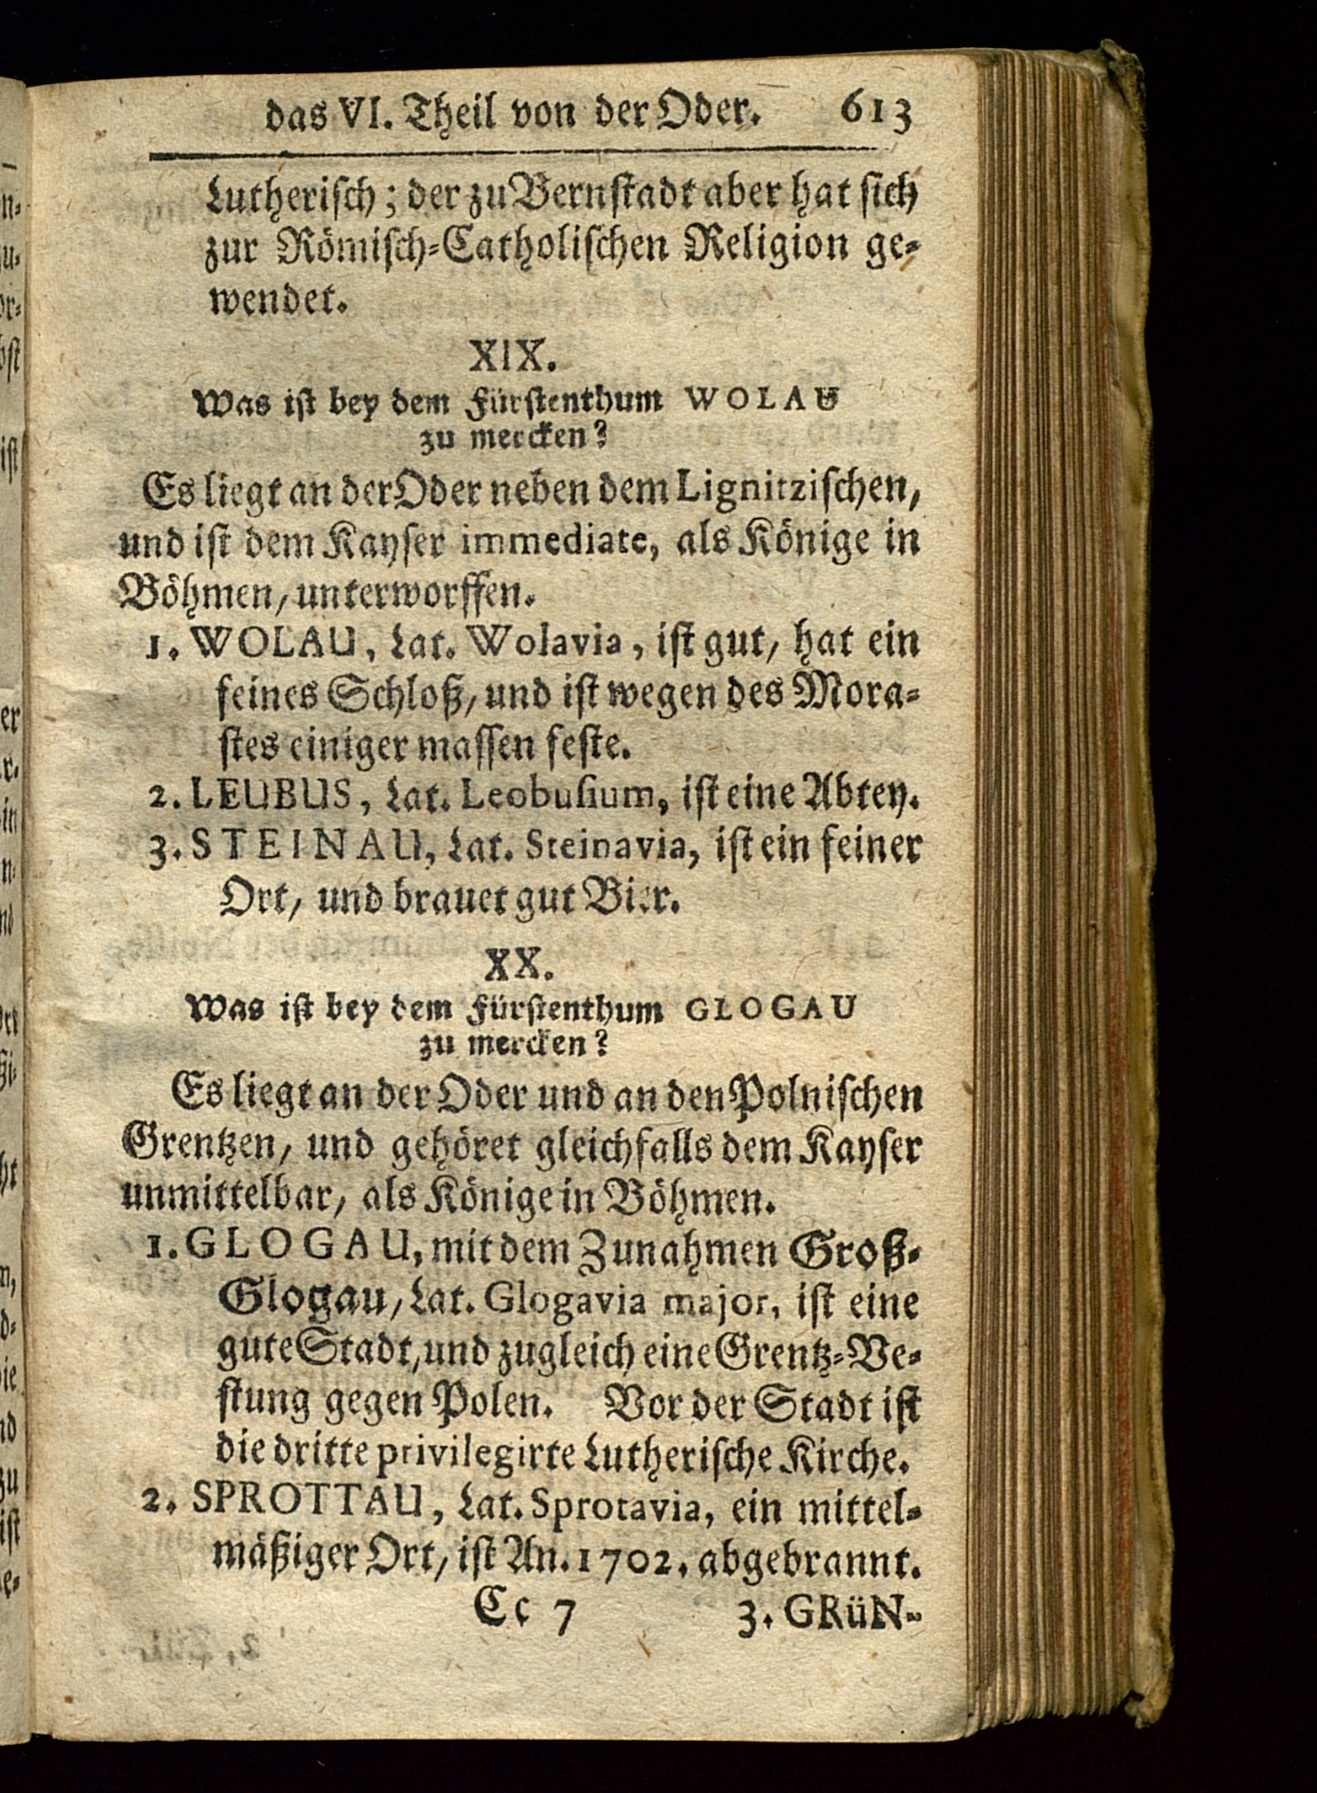 das VI. Theil von der Oder. 613
Lutherisch; der zu Bernstadt aber hat sich
zur Römisch-Catholischen Religion ge-
wendet.
XIX.
Was ist bey dem Fürstenthum WOLAU
zu mercken?
Es liegt an der Oder neben dem Lignitzischen,
und ist dem Kayser immediate, als Könige in
Böhmen, unterworffen.
1. WOLAU, Lat. Wolavia, ist gut, hat ein
feines Schloß, und ist wegen des Mora-
stes einiger massen feste.
2. LEUBUS, Lat. Leobusium, ist eine Abtey.
3. STEINAU, Lat. Steinavia, ist ein feiner
Ort, und brauet gut Bier.
XX.
Was ist bey dem Fürstenthum GLOGAU
zu mercken?
Es liegt an der Oder und an den Polnischen
Grentzen, und gehöret gleichfalls dem Kayser
unmittelbar, als Könige in Böhmen.
1. GLOGAU, mit dem Zunahmen Groß-
Glogau, Lat. Glogavia major, ist eine
gute Stadt, und zugleich eine Grentz-Ve-
stung gegen Polen. Vor der Stadt ist
die dritte privilegirte Lutherische Kirche.
2. SPROTTAU, Lat. Sprotavia, ein mittel-
mäßiger Ort, ist An. 1702. abgebrannt.
Cc 7 3. GRüN-